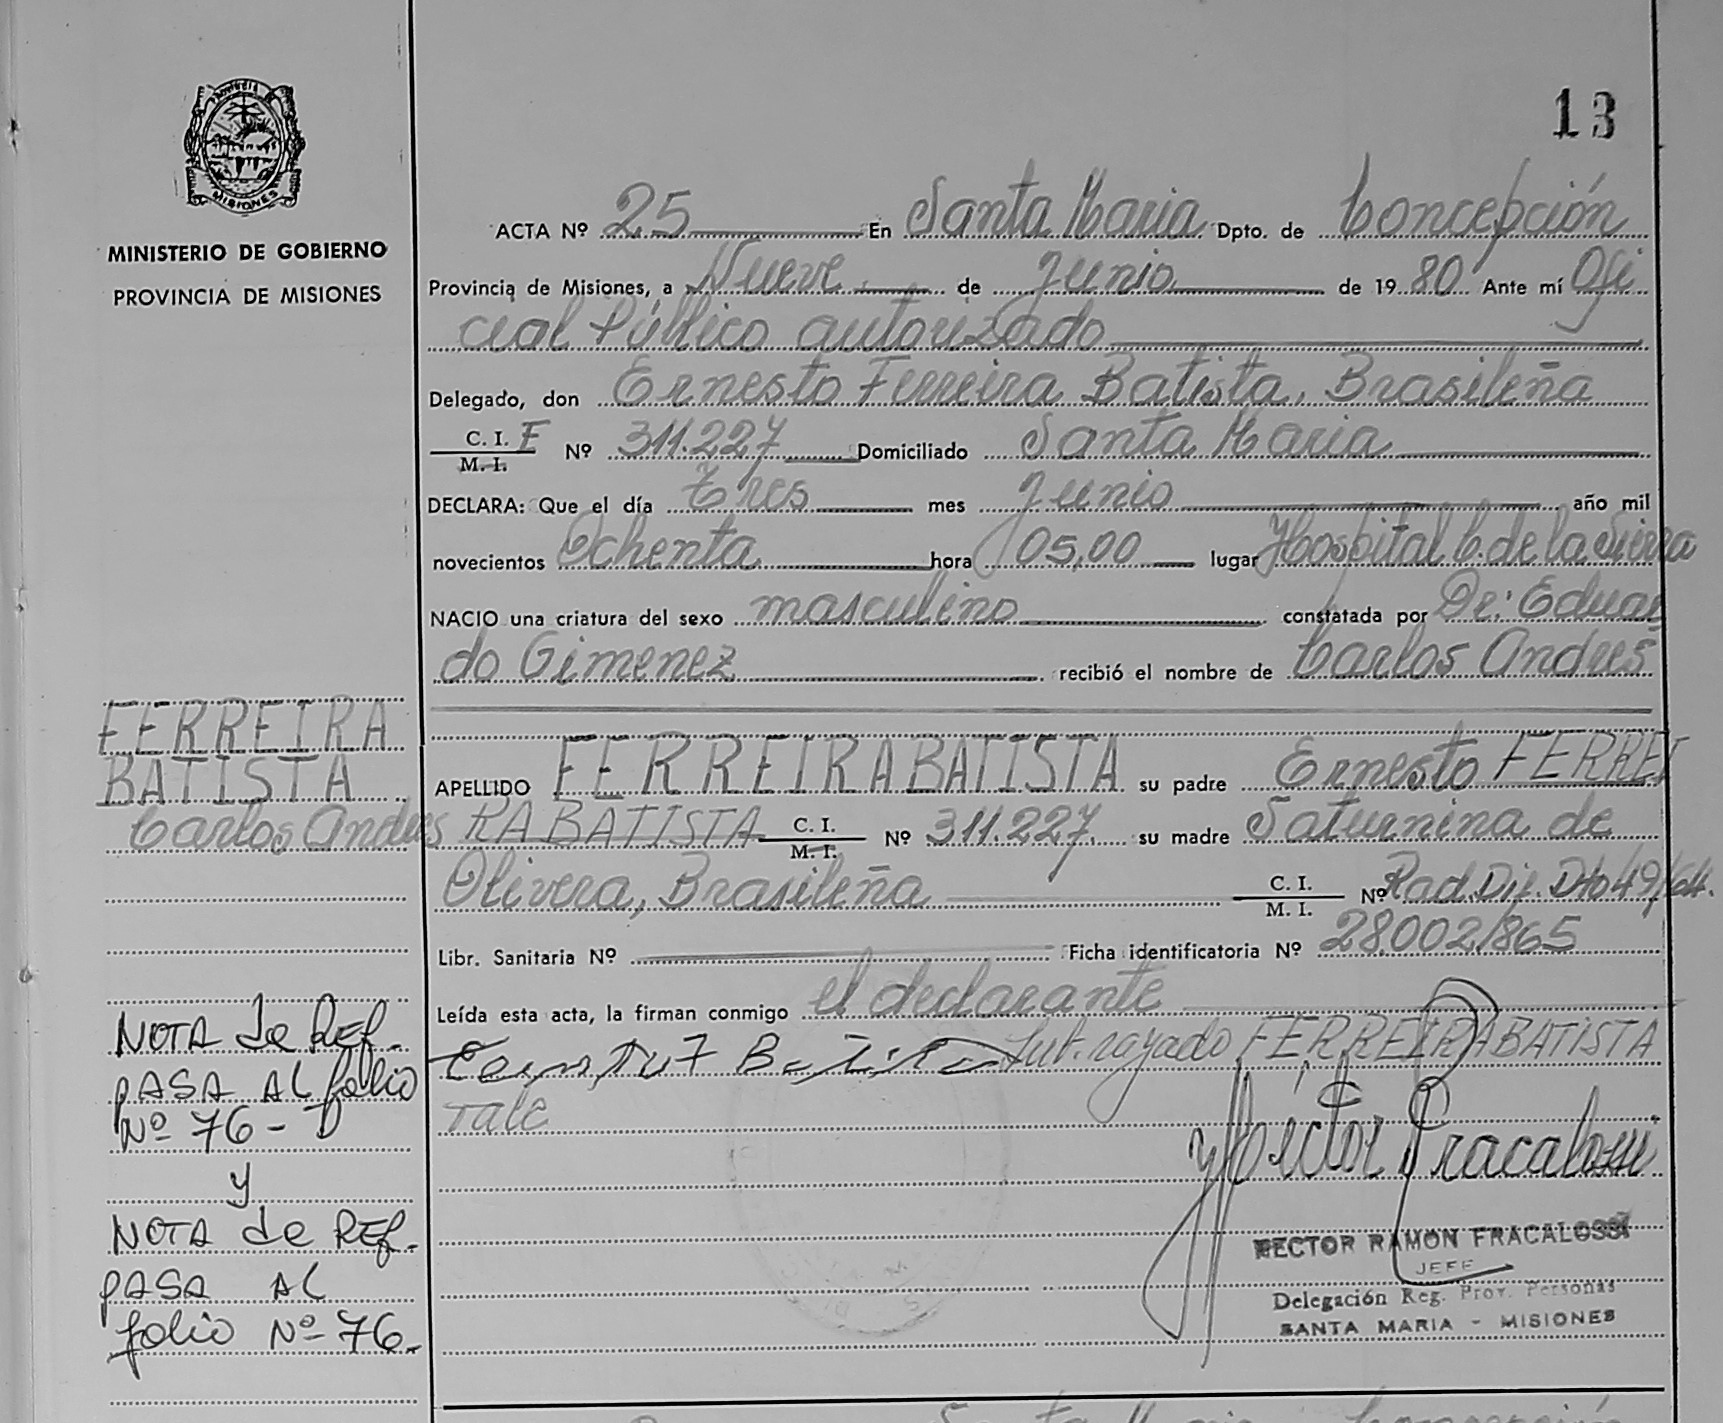 13
PROVINCIA DE
MISIONES
MINISTERIO DE GOBIERNO
PROVINCIA DE MISIONES
ACTA Nº 25 En Santa Maria Dpto. de Concepción
Provincia de Misiones, a Nueve de Junio de 1980 Ante mí Ofi
cial Público autorizado
Delegado, don Ernesto Ferreira Batista, Brasileña
C. I. E Nº 311.227 Domiciliado Santa Maria
M. I.
DECLARA: Que el día Tres mes Junio año mil
novecientos Ochenta hora 05,00 lugar Hospital C. de la Sierra
NACIO una criatura del sexo masculino constatada por Dr: Eduar
do Gimenez recibió el nombre de Carlos Andres
APELLIDO FERREIRA BATISTA su padre Ernesto FERREI
RA BATISTA C. I. Nº 311.227 su madre Saturnina de
M. I.
Olivera, Brasileña C. I. Nº Rad. Dif. Dto 49/64.
M. I.
Libr. Sanitaria Nº Ficha identificatoria Nº 28.002/865
Leída esta acta, la firman conmigo el declarante
Sub. rayado FERREIRA BATISTA
Vale
Héctor Fracalossi
HECTOR RAMON FRACALOSSI
JEFE
Delegación Reg. Prov. Personas
SANTA MARIA - MISIONES
FERREIRA
BATISTA
Carlos Andres
NOTA de REF.
PASA AL folio
Nº 76-
y
NOTA de REF.
PASA AL
folio Nº 76.